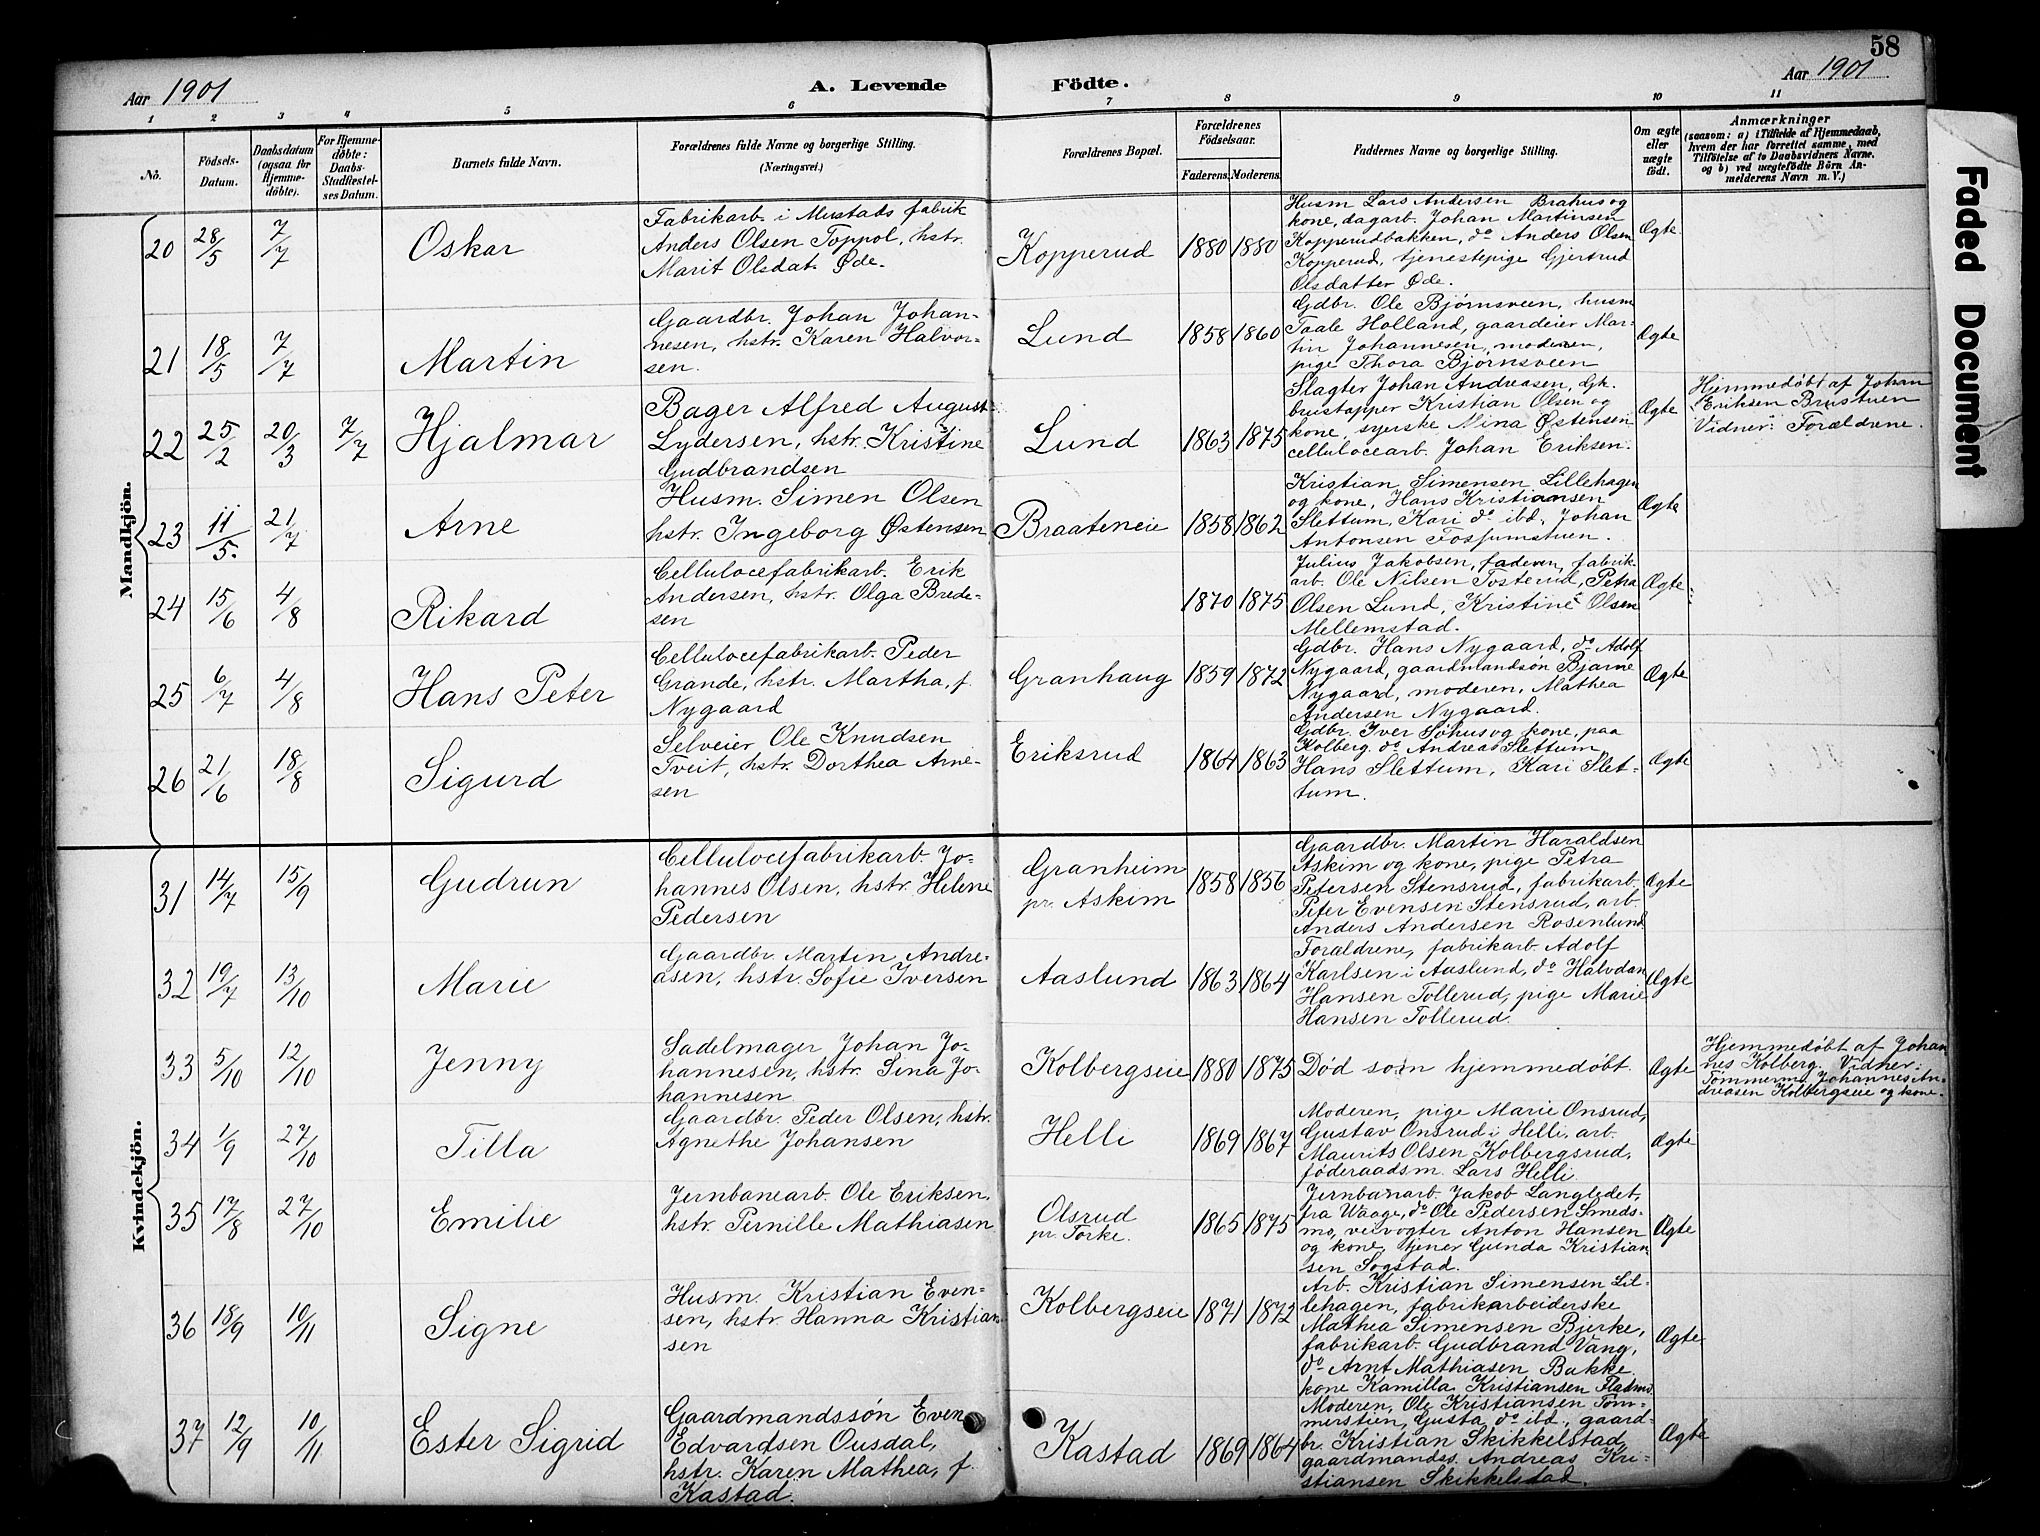 58
Aar 1901
A. Levende Födte.
Aar 1901
1 2 3 4 5 6 7 8 9 10 11
No.
Födsels-Datum.
Daabsdatum (ogsaa for Hjemmedöbte).
For Hjemmedöbte: Daabs-Stadfæstelses Datum.
Barnets fulde Navn.
Forældrenes fulde Navne og borgerlige Stilling.
(Næringsvei.)
Forældrenes Bopæl.
Forældrenes Födselsaar.
Faderens. Moderens.
Faddernes Navne og borgerlige Stilling.
Om ægte eller uægte födt.
Anmærkninger
(saasom: a) i Tilfælde af Hjemmedaab,
hvem der har forrettet samme, med
Tilföielse af to Daabsvidners Navne.
og b) ved uægtefödte Börn An-
melderens Navn m. V.)
Faded Document
Mandkjön.
20 28/5 7/7 Oskar
Fabrikarb. i Mustads fabrik
Anders Olsen Toppol, hstr.
Marit Olsdat. Øde.
Kopperud 1880 1880
Husm Lars Andersen Brahus og
kone, dagarb. Johan Martinsen
Kopperudbakken, do Anders Olsen
Kopperud, tjenestepige Gjertrud
Olsdatter Øde.
Ægte.
21 18/5 7/7 Martin
Gaardbr. Johan Johan-
nesen, hstr. Karen Halvor-
sen.
Lund 1858 1860
Gdbr. Ole Bjørnsveen, husm
Taale Holland, gaardeier Mar-
tin Johannesen, moderen,
pige Thora Bjørnsveen
Ægte
22 25/2 20/3 7/7 Hjalmar
Bager Alfred August
Lydersen, hstr. Kristine
Gudbrandsen
Lund 1863 1875
Slagter Johan Andreasen, Gk.
brustapper Kristian Olsen og
kone, syerske Nina Østensen
cellulocearb. Johan Eriksen.
Ægte
Hjemmedøbt af Johan
Eriksen Brustuen
Vidner: Forældrene.
23 11/5. 21/7 Arne
Husm. Simen Olsen
hstr. Ingeborg Østensen
Braateneie 1858 1862
Kristian Simensen Lillehagen
og kone, Hans Kristiansen
Slettum, Kari do ibd, Johan
Antonsen Fossumstuen.
Ægte
24 15/6 4/8 Rikard
Cellulocefabrikarb. Erik
Andersen, hstr. Olga Brede-
sen
1870 1875
Julius Jakobsen, faderen, fabrik
arb. Ole Nilsen Tosterud, Petra
Olsen Lund, Kristine Olsen
Mellemstad.
Ægte
25 6/7 4/8 Hans Peter
Cellulocefabrikarb. Peder
Grande, hstr. Martha, f.
Nygaard
Granhaug 1859 1872
Gdbr. Hans Nygaard, do Adolf
Nygaard, gaardmandsøn Bjarne
Nygaard, moderen, Mathea
Andersen Nygaard.
Ægte
26 21/6 18/8 Sigurd
Selveier Ole Knudsen
Tveit, hstr. Dorthea Arne-
sen
Eriksrud 1864 1863
Gdbr. Iver Søhus og kone, paa
Kolberg, do Andreas Slettum
Hans Slettum, Kari Slet-
tum.
Ægte
Kvindekjön.
31 14/7 15/9 Gudrun
Cellulocefabrikarb. Jo-
hannes Olsen, hstr. Helene
Pedersen
Granheim
pr. Askim
1858 1856
Gaardbr. Martin Haraldsen
Askim og kone, pige Petra
Petersen Stensrud, fabrikarb.
Peter Evensen Stensrud, arb.
Anders Andersen Rosenlund
Ægte
32 19/7 13/10 Marie
Gaardbr. Martin Andre-
asen, hstr Sofie Iversen
Aaslund 1863 1864
Foraldrene, fabrikarb. Adolf
Karlsen i Aaslund, do Halvdan
Hansen Tollerud, pige Marie
Hansen Tollerud.
Ægte
33 5/10 12/10 Jenny
Sadelmager Johan Jo-
hannesen, hstr. Sina Jo-
hannesen
Kolbergseie 1880 1875
Død som hjemmedøbt.
Ægte
Hjemmedøbt af Johan
nes Kolberg. Vidner:
Tømmerm. Johannes An-
dreasen Kolbergseie og kone.
34 1/9 27/10 Tilla
Gaardbr. Peder Olsen, hstr.
Agnethe Johansen
Helli 1869 1867
Moderen, pige Marie Onsrud,
Gustav Onsrud i Helli, arb.
Maurits Olsen Kolbergsrud,
føderaadsm. Lars Helli
Ægte
35 17/8 27/10 Emilie
Jernbanearb. Ole Eriksen,
hstr. Pernille Mathiasen
Olsrud
pr. Torke.
1865 1875
Jernbanarb. Jakob Langledet,
fra Waage, do Ole Pedersen Smeds-
mo, veivogter Anton Hansen
og kone, tjener Gunda Kristian
sen Sogstad.
Ægte
36 18/9 10/11 Signe
Husm. Kristian Even-
sen, hstr. Hanna Kristian
sen
Kolbergseie 1871 1872
Arb. Kristian Simensen Lil-
lehagen, fabrikarbeiderske
Mathea Simensen Bjerke,
fabrikarb. Gudbrand Vang,
do Arnt Mathiasen Bakke
kone Kamilla Kristiansen
Ægte
37 12/9 10/11 Ester Sigrid
Gaardmandssøn Even
Edvardsen Ousdal,
hstr. Karen Mathea, f.
Kastad.
Kastad 1869 1864
Moderen, Ole Kristiansen Tøm-
merstien, Gusta do ibd., gaard-
br. Kristian Skikkelstad,
gaardmandss. Andreas Kri-
stiansen Skikkelstad.
Ægte